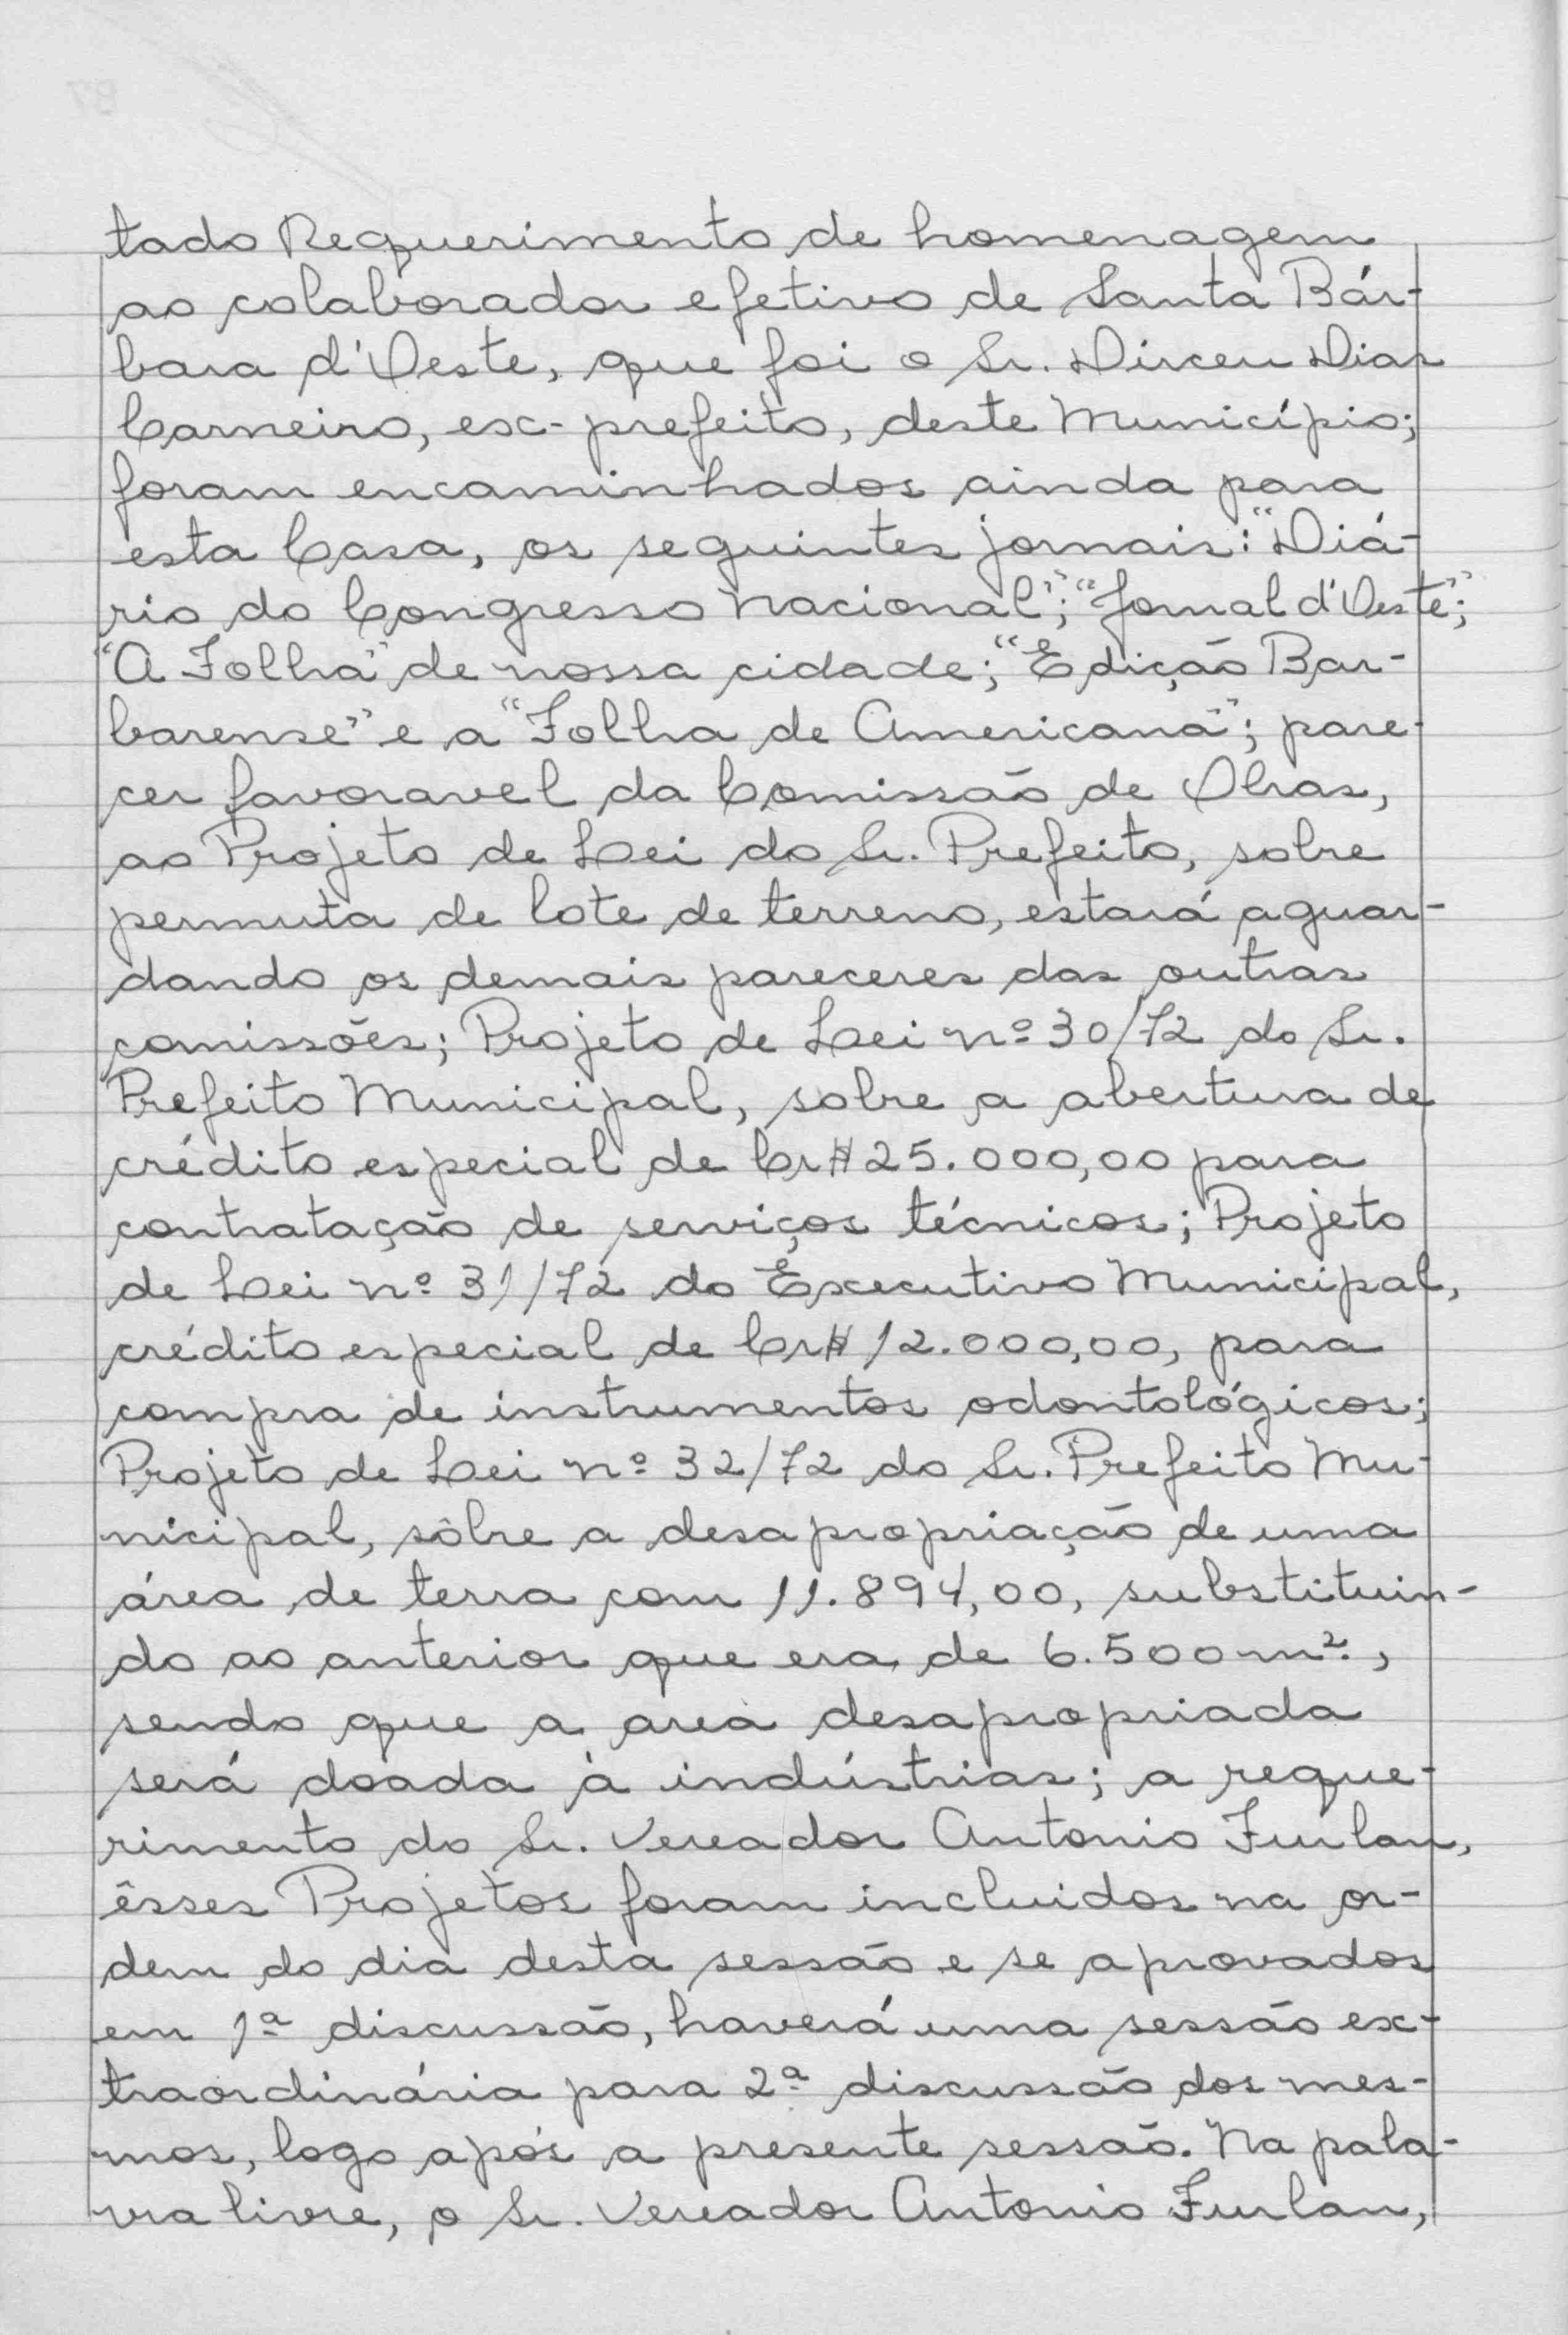 tado Requerimento de homenagem
ao colaborador efetivo de Santa Bár-
bara d'Oeste, que foi o Sr. Dirceu Dias
Carneiro, ex-prefeito, deste Município;
foram encaminhados ainda para
esta Casa, os seguintes jornais: "Diá-
rio do Congresso Nacional"; "Jornal d'Oeste";
"A Folha" de nossa cidade; "Edição Bar-
barense" e a "Folha de Americana"; pare-
cer favoravel da Comissão de Obras,
ao Projeto de Lei do Sr. Prefeito, sobre
permuta de lote de terreno, estará aguar-
dando os demais pareceres das outras
comissões; Projeto de Lei nº 30/72 do Sr.
Prefeito Municipal, sobre a abertura de
crédito especial de Cr$ 25.000,00 para
contratação de serviços técnicos; Projeto
de Lei nº 31/72 do Executivo Municipal,
crédito especial de Cr$ 12.000,00, para
compra de instrumentos odontológicos;
Projeto de Lei nº 32/72 do Sr. Prefeito Mu-
nicipal, sôbre a desapropriação de uma
área de terra com 11.894,00, substituin-
do ao anterior que era de 6.500m².,
sendo que a area desapropriada
será doada à indústrias; a reque-
rimento do Sr. Vereador Antonio Furlan,
êsses Projetos foram incluidos na or-
dem do dia desta sessão e se aprovados
em 1ª discussão, haverá uma sessão ex-
traordinária para 2ª discussão dos mes-
mos, logo após a presente sessão. Na pala-
vra livre, o Sr. Vereador Antonio Furlan,